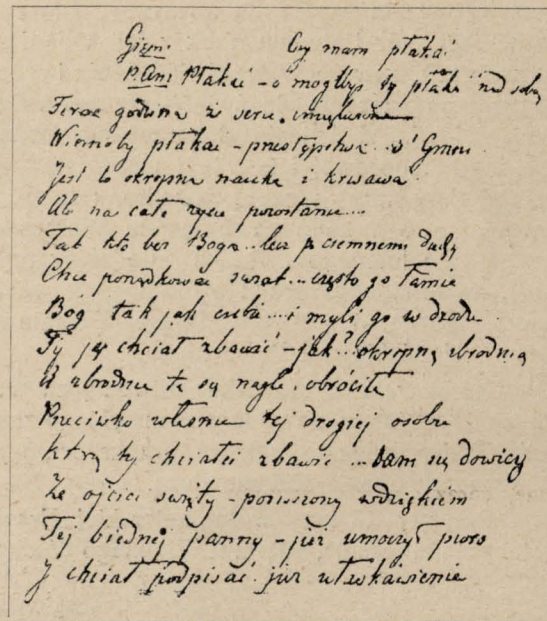 Gizm: Czy mam płakać
P. Ani Płakać – o mógłbyś ty płakać nad sobą
Teraz godzina
Winnoby płakać – przestępstwa
Jest to okropna nauka i krwawa
Ale na całe życie pozostanie...
Tak kto bez Boga.. lecz z ciemnemi duchy
Chce porządkować świat... często go łamie
Bóg tak jak ciebie.... i myli go w drodze
Ty ją chciał zbawić – jak? okropną zbrodnią
A zbrodnia ta się nagle obróciła
Przeciwko własnie tej drogiej osobie
Którą ty chciałeś zbawić ... sam się dowiesz
Że ojciec święty – poruszony wdziękiem
Tej biednej panny – już umoczył pioro
I chciał podpisać już ułaskawienie